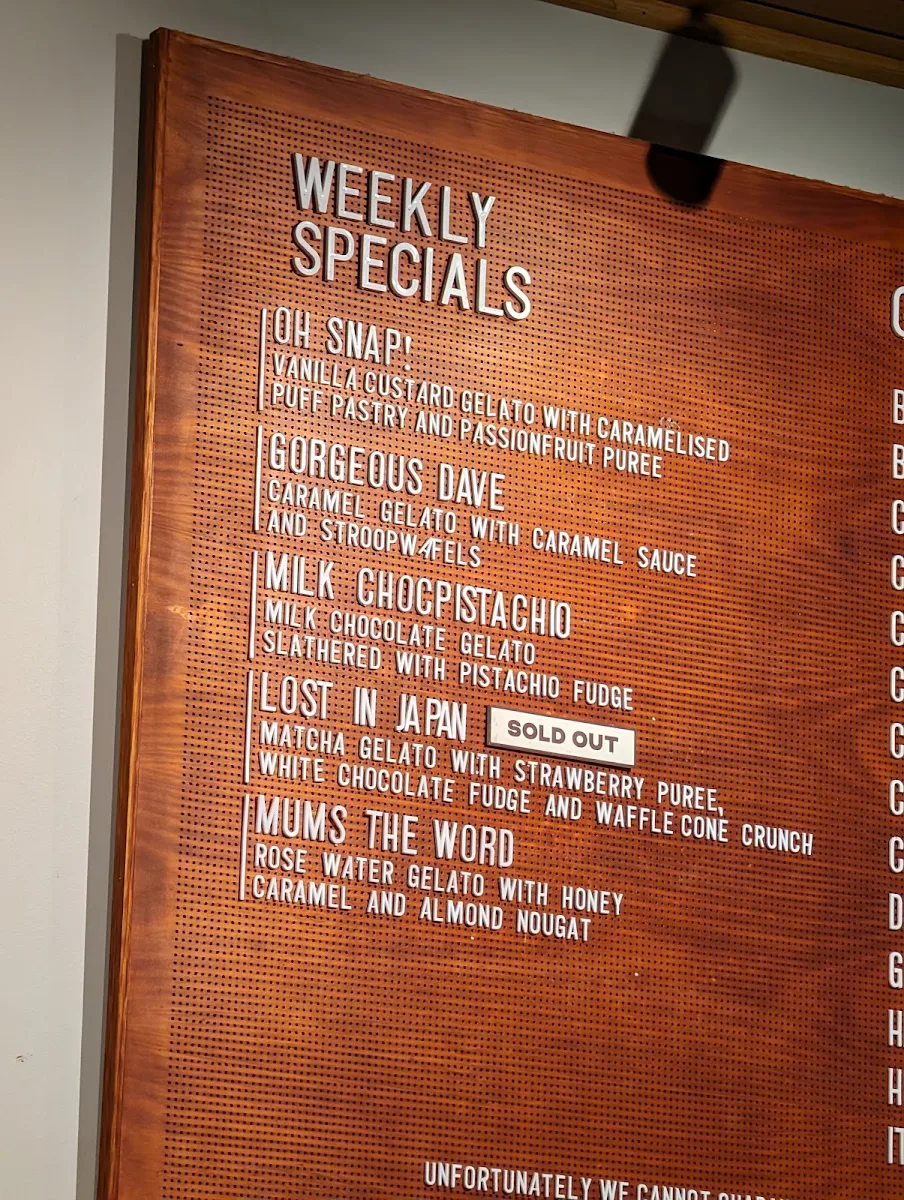 WEEKLY
SPECIALS
OH SNAP!
VANILLA CUSTARD GELATO WITH CARAMELISED
PUFF PASTRY AND PASSIONFRUIT PUREE
GORGEOUS DAVE
CARAMEL GELATO WITH CARAMEL SAUCE
AND STROOPWAFELS
MILK CHOCPISTACHIO
MILK CHOCOLATE GELATO
SLATHERED WITH PISTACHIO FUDGE
LOST IN JAPAN SOLD OUT
MATCHA GELATO WITH STRAWBERRY PUREE,
WHITE CHOCOLATE FUDGE AND WAFFLE CONE CRUNCH
MUMS THE WORD
ROSE WATER GELATO WITH HONEY
CARAMEL AND ALMOND NOUGAT
UNFORTUNATELY WE CANNOT